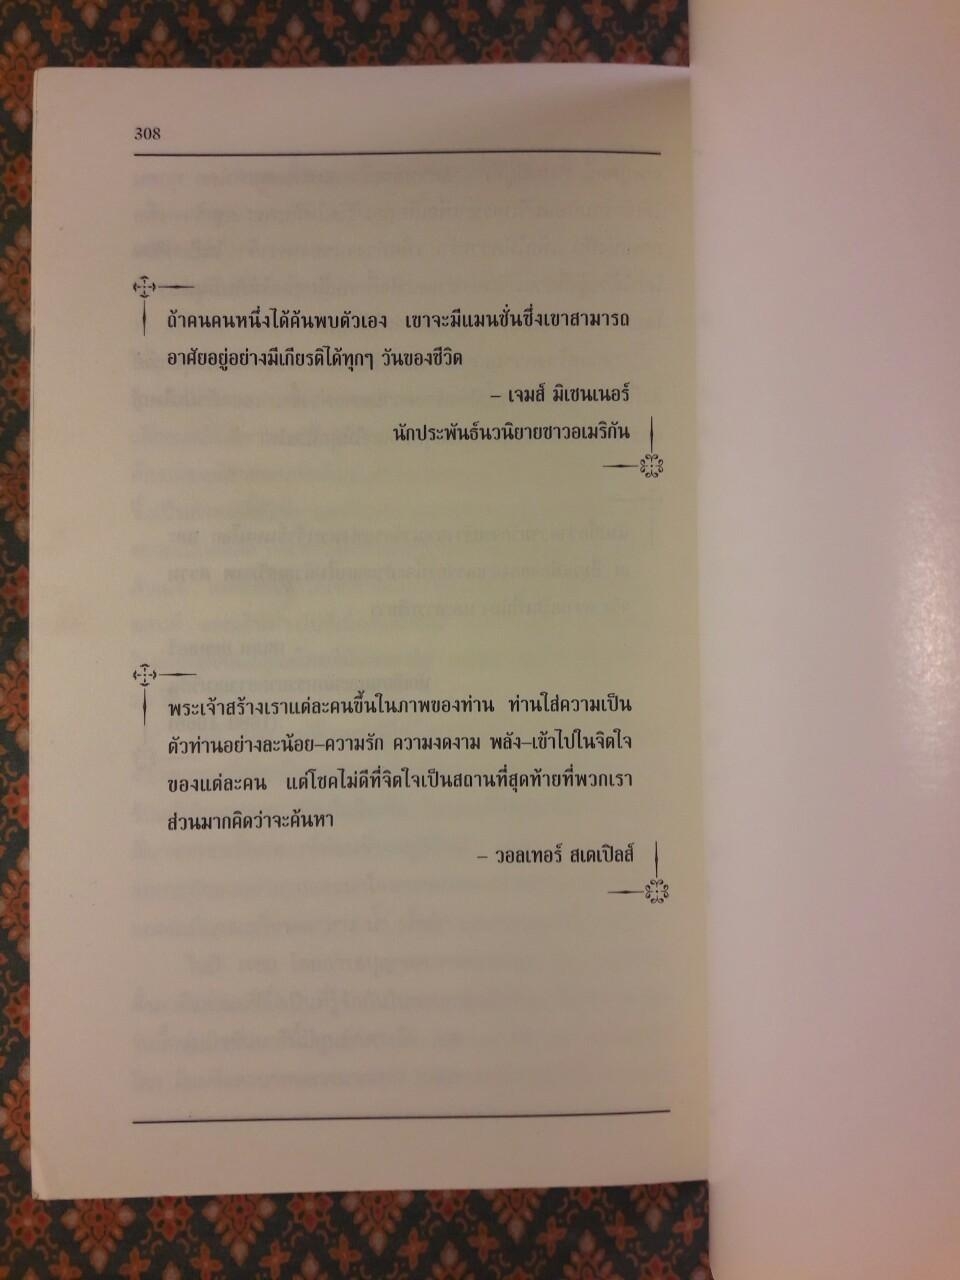 308
ถ้าคนคนหนึ่งได้ค้นพบตัวเอง เขาจะมีแมนชั่นซึ่งเขาสามารถ
อาศัยอยู่อย่างมีเกียรติได้ทุกๆ วันของชีวิต
– เจมส์ มิเชนเนอร์
นักประพันธ์นวนิยายชาวอเมริกัน
พระเจ้าสร้างเราแต่ละคนขึ้นในภาพของท่าน ท่านใส่ความเป็น
ตัวท่านอย่างละน้อย–ความรัก ความงดงาม พลัง–เข้าไปในจิตใจ
ของแต่ละคน แต่โชคไม่ดีที่จิตใจเป็นสถานที่สุดท้ายที่พวกเรา
ส่วนมากคิดว่าจะค้นหา
– วอลเทอร์ สเตเปิลส์